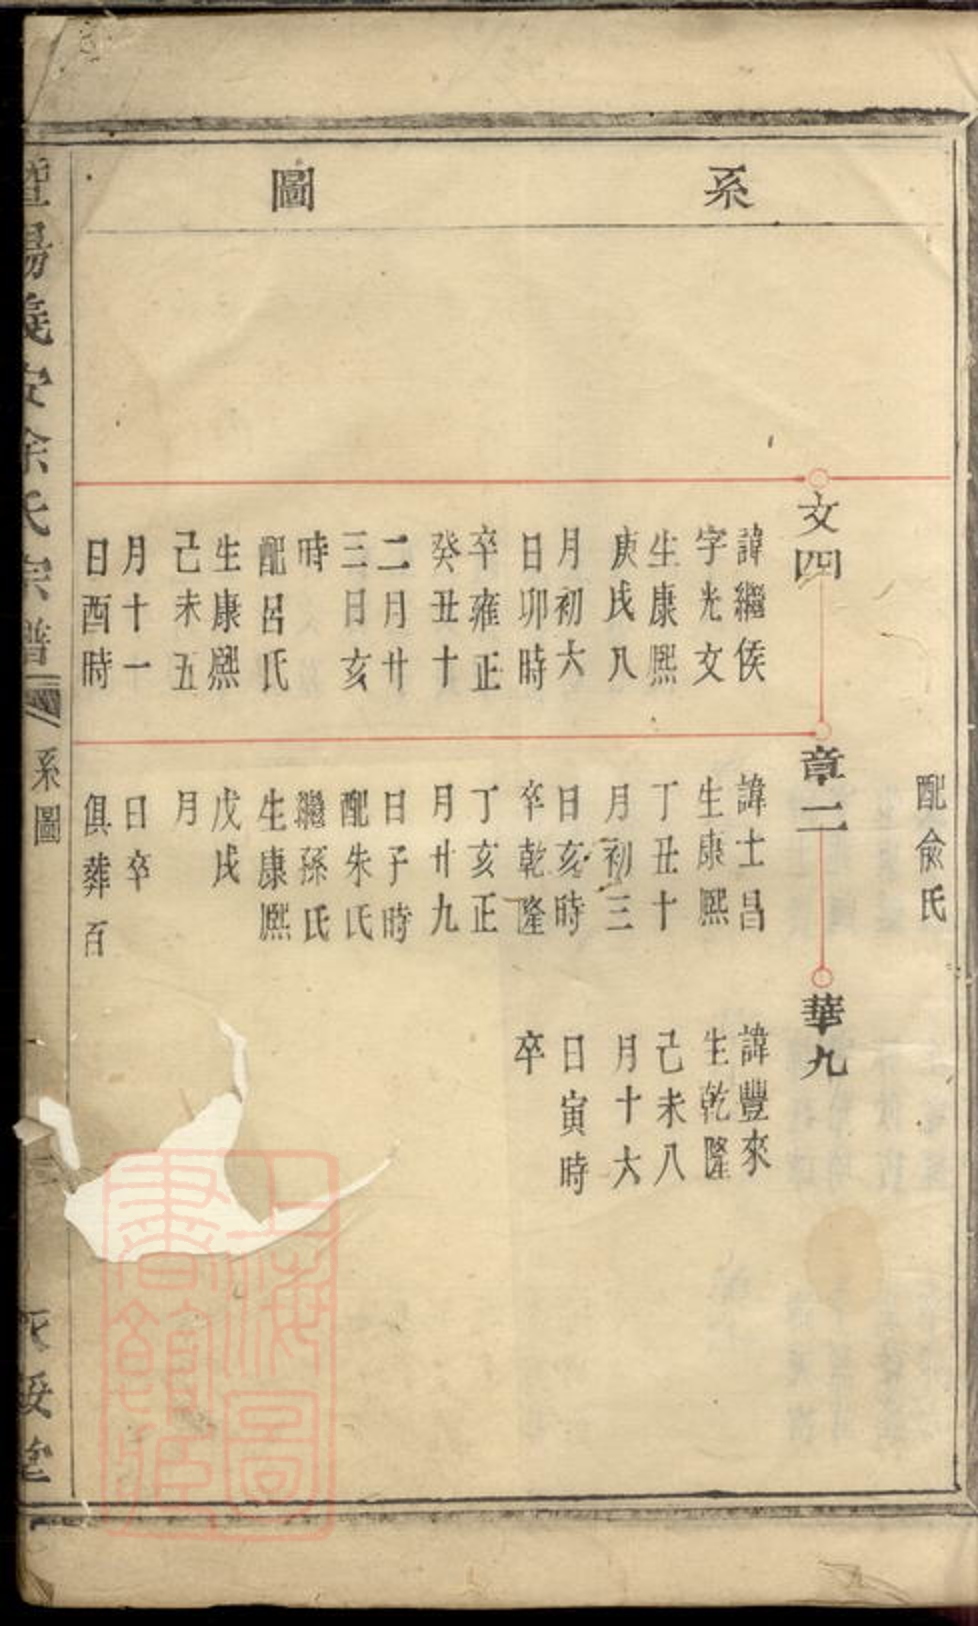 系圖
配俞氏
文四
諱繼侯
字光文
生康熙
庚戌八
月初六
日卯時
卒雍正
癸丑十
二月廿
三日亥
時
配呂氏
生康熙
己未五
月十一
日酉時
章二
諱士昌
生康熙
丁丑十
月初三
日亥時
卒乾隆
丁亥正
月廿九
日子時
配朱氏
繼孫氏
生康熙
戊戌
月
日卒
俱葬百
華九
諱豐來
生乾隆
己未八
月十六
日寅時
卒
暨陽義安徐氏宗譜
系圖
上海圖書館藏